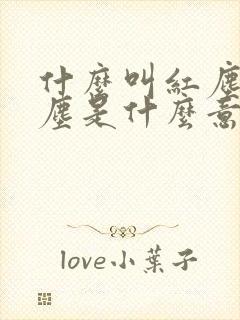 什麼叫紅塵
塵是什麼意
love小葉子